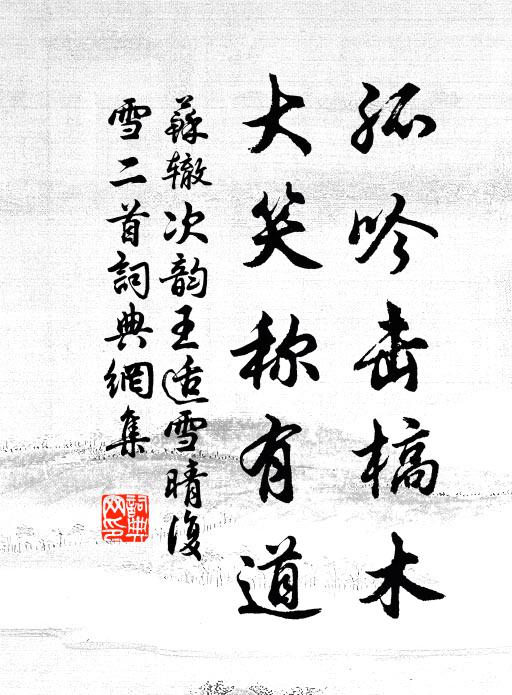 孤吟击槁木
大笑称有道
蘇辙次韵王适雪晴復
雪二首詞典網集
詞典
网